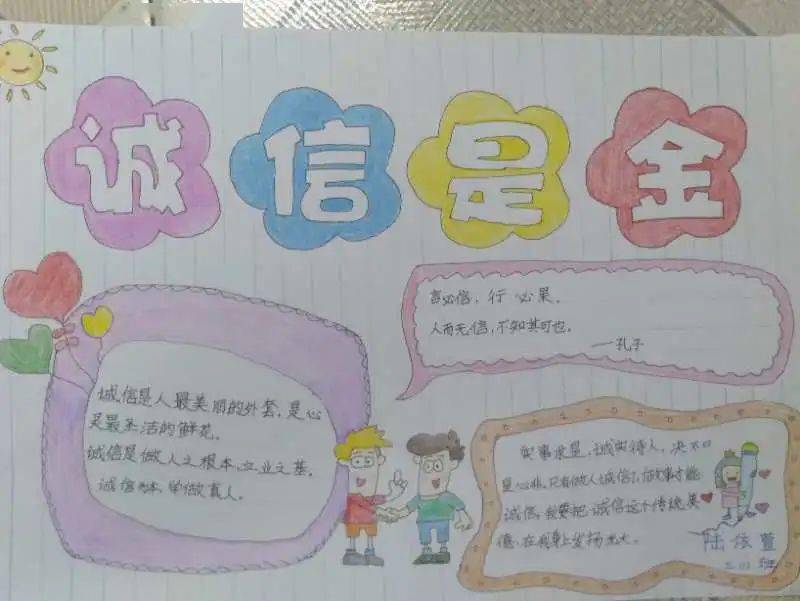 诚信是金
言必信，行必果。
人而无信，不知其可也。
——孔子
诚信是人最美丽的外套，是心
灵最圣洁的鲜花。
诚信是做人之根本，立业之基。
诚信为本，学做真人。
实事求是，诚实待人，决不口
是心非，只有做人诚信，做事才能
诚信，我要把诚信这个传统美
德，在我身上发扬光大。
陆
班